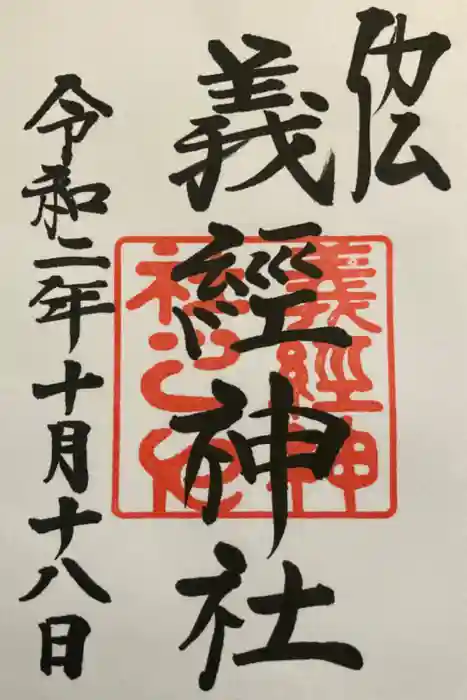 義經神社
令和二年十月十八日
義經神